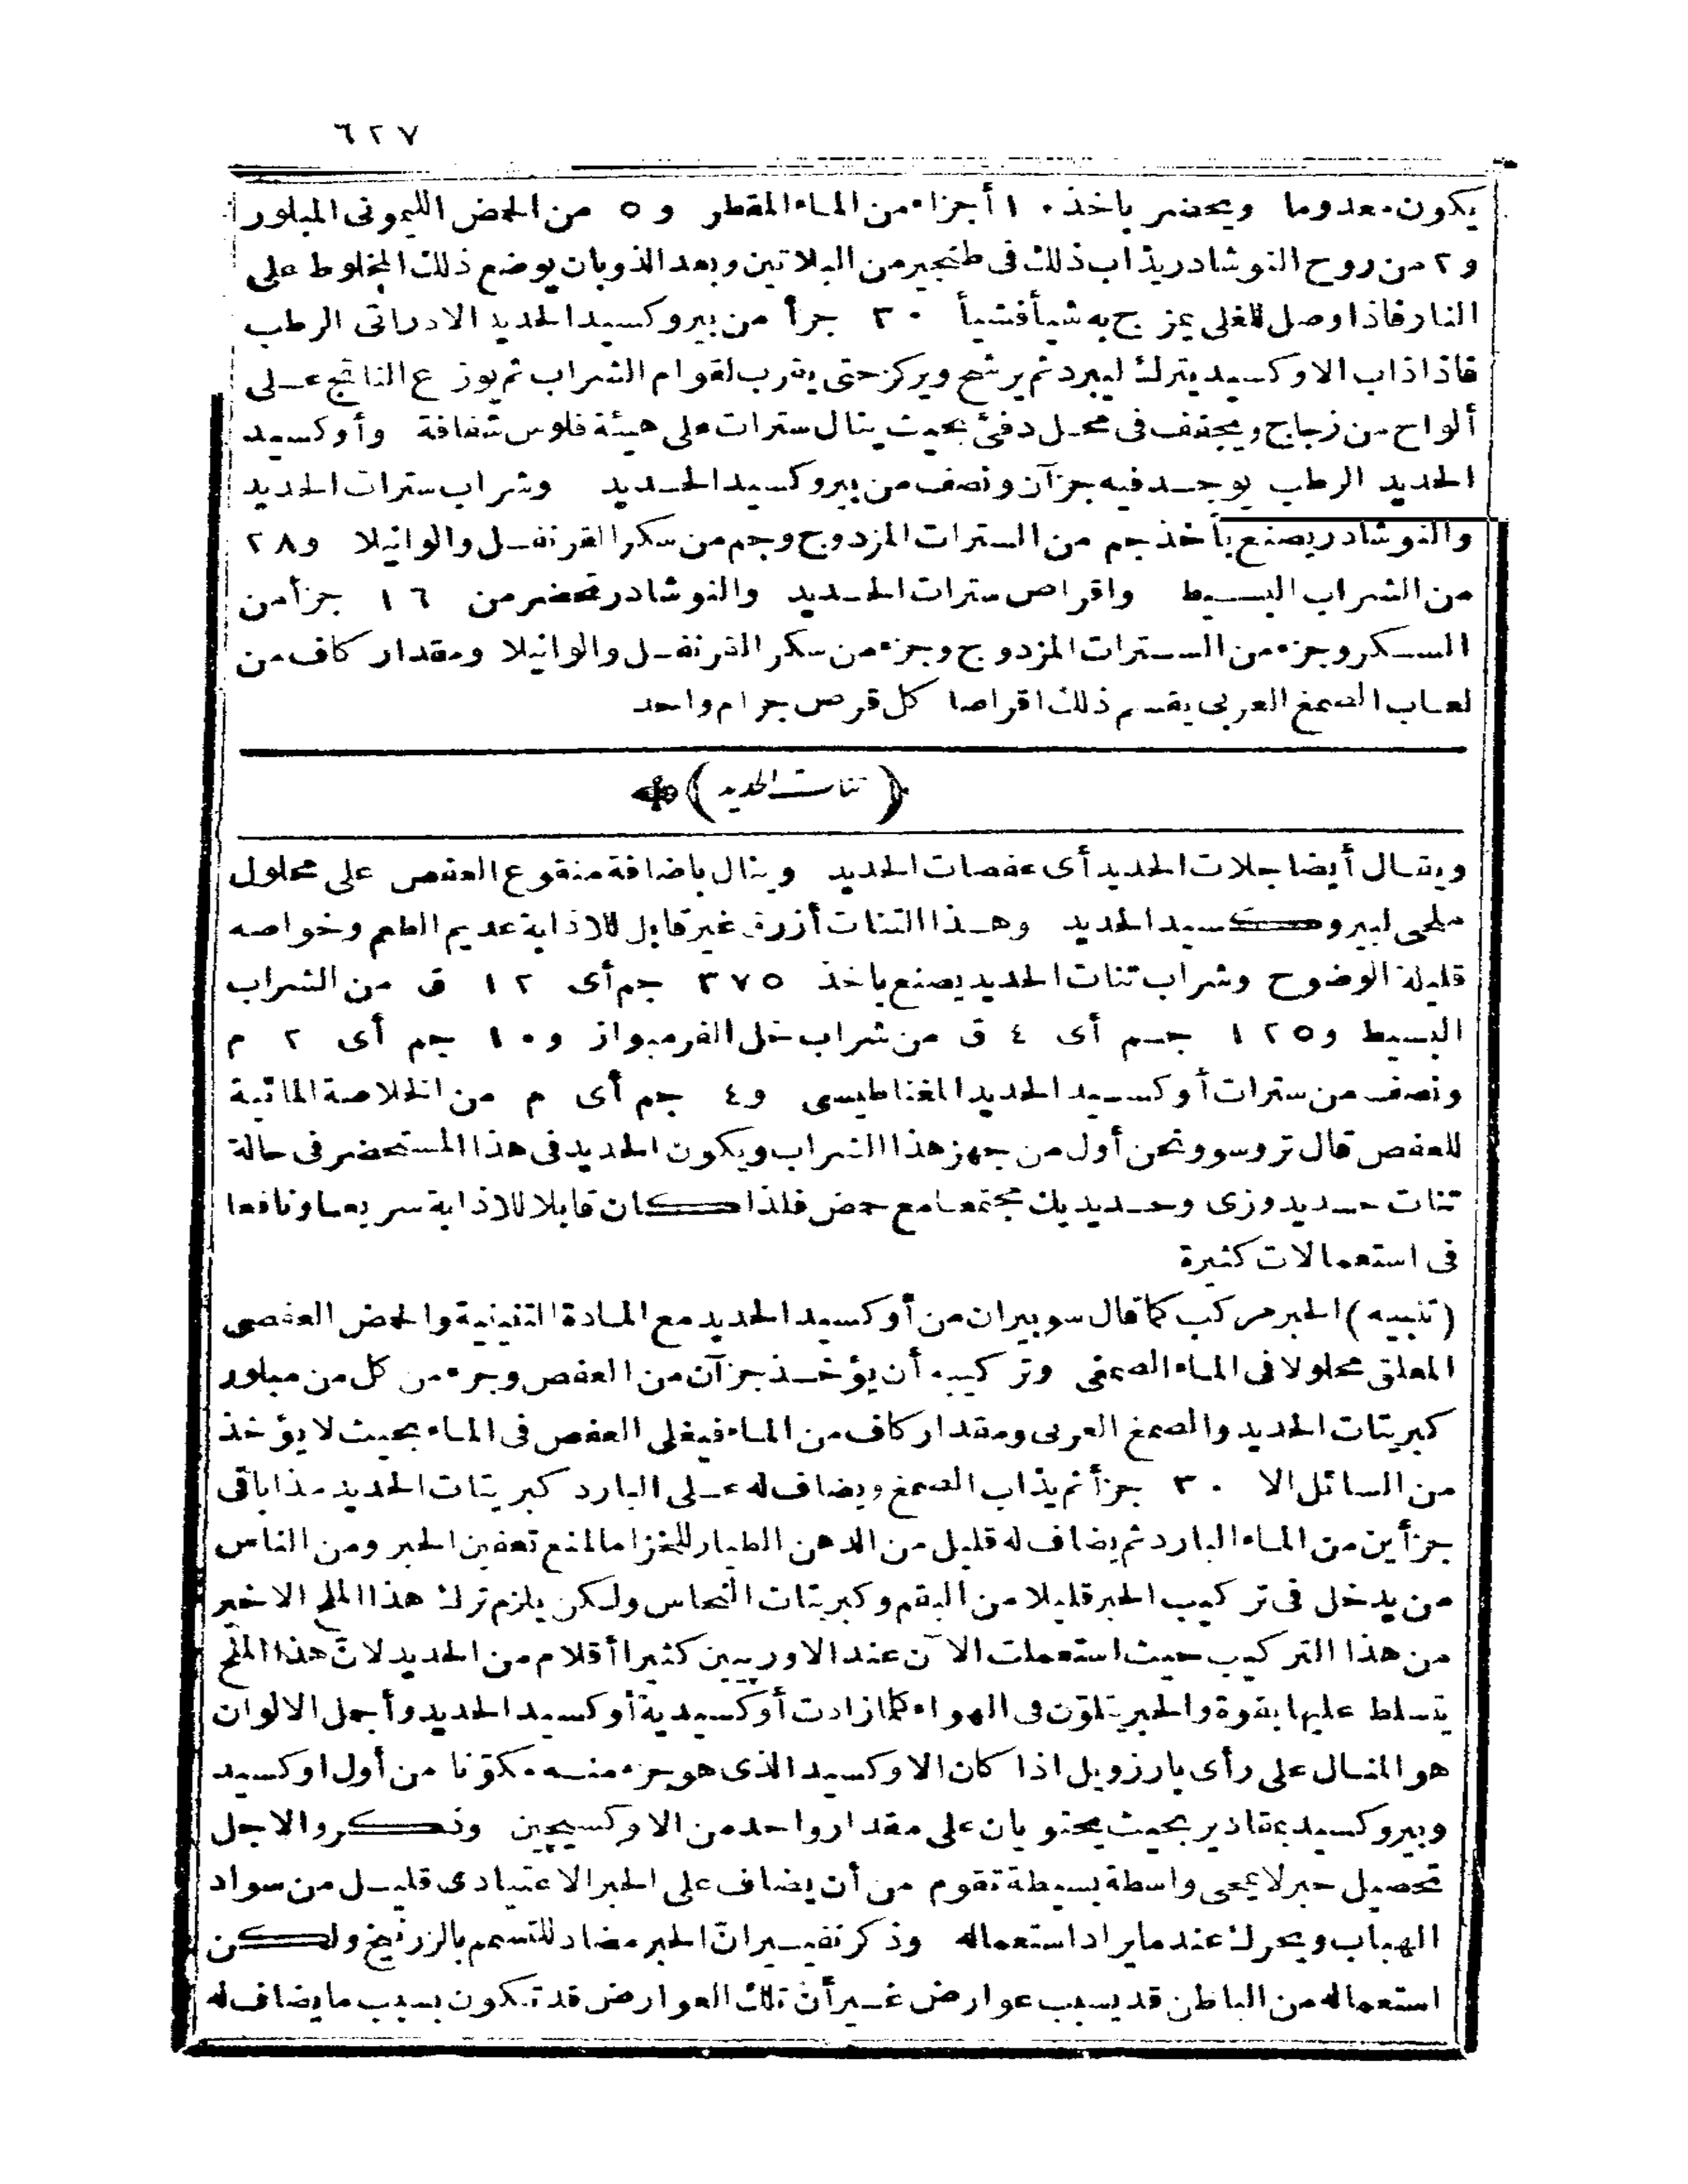 ٦٢٧
يكون معدوما ويحضر باخذ ١٠ أجزاء من الماء المقطر و ٥ من الحمض الليمونى المبلور
و ٢ من روح النوشادر يذاب ذلك فى طنجير من البلاتين وبعد الذوبان يوضع ذلك المخلوط على
النار فاذا وصل للغلى يمزج به شيأ فشيأ ٣٠ جزأ من بيروكسيد الحديد الادراتى الرطب
فاذا ذاب الاوكسيد يترك ليبرد ثم يرشح ويركز حتى يقرب لقوام الشراب ثم يوزع الناتج على
ألواح من زجاج ويجفف فى محل دفئ بحيث ينال سترات على هيئة فلوس شفافة وأوكسيد
الحديد الرطب يوجد فيه جزآن ونصف من بيروكسيد الحديد وشراب سترات الحديد
والنوشادر يصنع بأخذ جم من السترات المزدوج وجم من سكر القرنفل والوانيلا و ٢٨
من الشراب البسيط واقراص سترات الحديد والنوشادر تحضر من ١٦ جزأ من
السكر وجزء من السترات المزدوج وجزء من سكر القرنفل والوانيلا ومقدار كاف من
لعاب الصمغ العربى يقسم ذلك اقراصا كل قرص جرام واحد
(تنات الحديد)
ويقال أيضا جلات الحديد أى عفصات الحديد وينال باضافة منقوع العفص على محلول
ملحى لبيروكسيد الحديد وهذا التنات أزرق غير قابل للاذابة عديم الطعم وخواصه
قليلة الوضوح وشراب تنات الحديد يصنع باخذ ٣٧٥ جم أى ١٢ ق من الشراب
البسيط و ١٢٥ جم أى ٤ ق من شراب خل الفرمبواز و ١٠ جم أى ٢ م
ونصف من سترات أوكسيد الحديد المغناطيسى و ٤ جم أى م من الخلاصة المائية
للعفص قال تروسو ونحن أول من جهز هذا الشراب ويكون الحديد فى هذا المستحضر فى حالة
تنات حديدوزى وحديديك مجتمعا مع حمض فلذا كان قابلا للاذابة سريعا ونافعا
فى استعمالات كثيرة
(تنبيه) الحبر مركب كما قال سوبيران من أوكسيد الحديد مع المادة التنينية والحمض العفصى
المعلق محلولا فى الماء الصمغى وتركيبه أن يؤخذ جزآن من العفص وجزء من كل من مبلور
كبريتات الحديد والصمغ العربى ومقدار كاف من الماء فيغلى العفص فى الماء بحيث لا يؤخذ
من السائل الا ٣٠ جزأ ثم يذاب الصمغ ويضاف له على البارد كبريتات الحديد مذابا فى
جزأين من الماء البارد ثم يضاف له قليل من الدهن الطيار للخزاما لمنع تعفين الحبر ومن الناس
من يدخل فى تركيب الحبر قليلا من البقم وكبريتات النحاس ولكن يلزم ترك هذا الملح الاخير
من هذا التركيب حيث استعملت الآن عند الاوربيين كثيرا أقلام من الحديد لانّ هذا الملح
يتسلط عليها بقوة والحبر يتلوّن فى الهواء كلما زادت أوكسيدية أوكسيد الحديد وأجمل الالوان
هو المنال على رأى بارزويل اذا كان الاوكسيد الذى هو جزء منه مكوّنا من أول اوكسيد
وبيروكسيد بمقادير بحيث يحتويان على مقدار واحد من الاوكسيجين وذكروا لاجل
تحصيل حبر لا يمحى واسطة بسيطة تقوم من أن يضاف على الحبر الاعتيادى قليل من سواد
الهباب ويحرك عند ما يراد استعماله وذكر نفيسير انّ الحبر مضاد للتسمم بالزرنيخ ولكن
استعماله من الباطن قد يسبب عوارض غير أن تلك العوارض قد تكون بسبب ما يضاف له